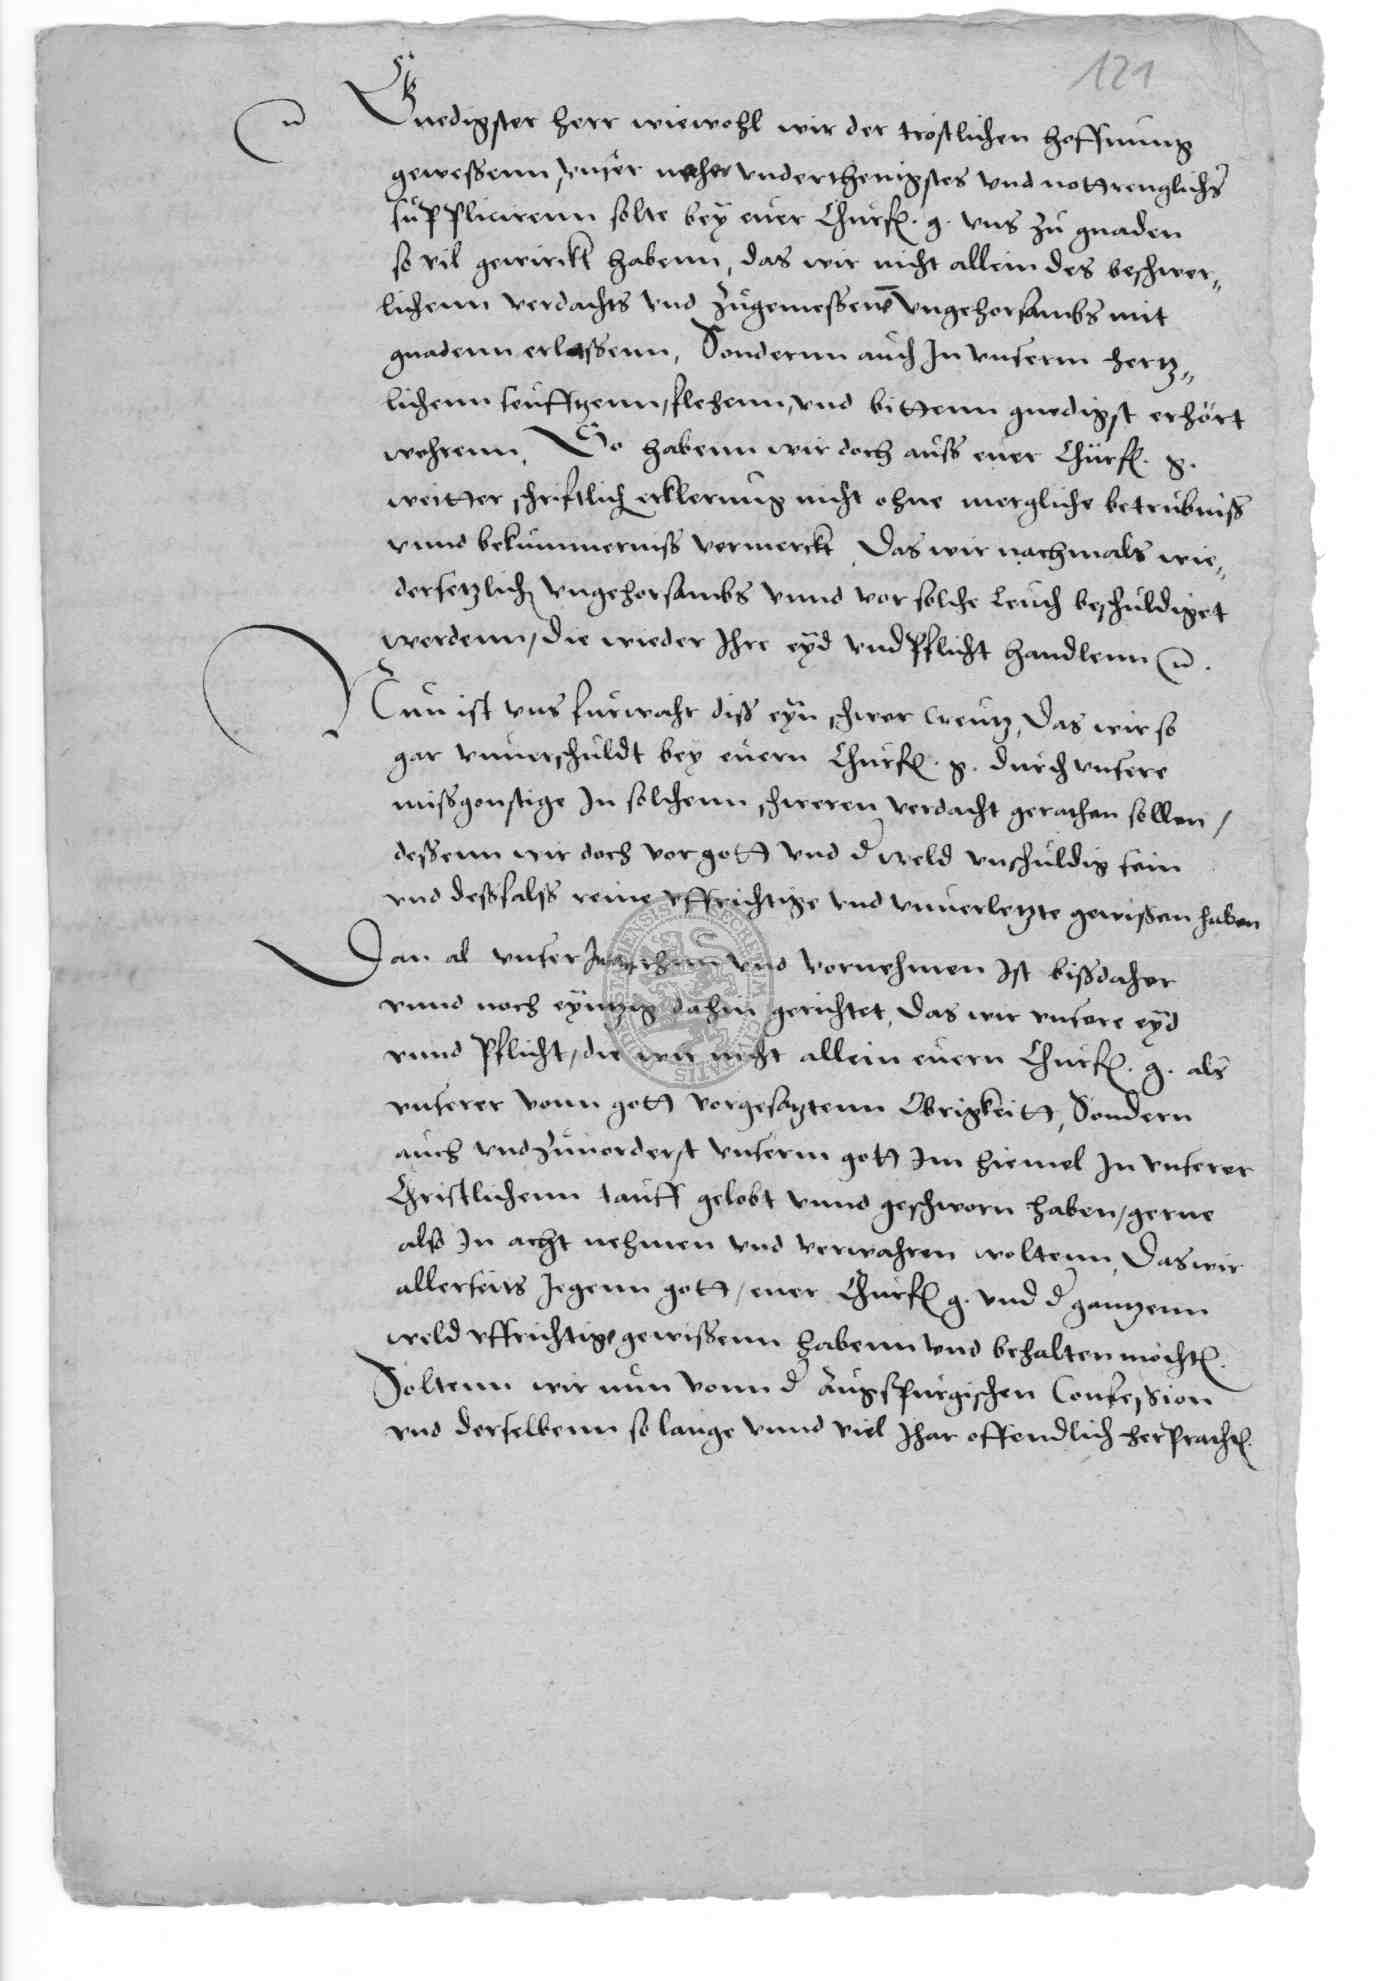 121
Gnedigster herr wiewohl wir der tröstlichen hoffnung
gewessenn, vnser neher vnderthenigstes vnd nottrenglichs
supplicirenn solte bey euer Churf. g. vns zu gnaden
so vil gewirckt habenn, das wir nicht allein des beschwer„
lichenn verdachts vnd zugemessenē vngehorsambs mit
gnadenn erlassenn, Sondernn auch In vnserm hertz„
lichenn seufftzenn, flehenn, vnd bittenn gnedigst erhört
wehrenn, So habenn wir doch auss euer Churf. g.
weitter schriftlich erklerung nicht ohne mergliche betrubniss
vnnd bekummerniss vermerckt, Das wir nachmals wie„
dersetzlich vngehorsambs vnnd vor solche Leuth beschuldiget
werdenn, die wieder Ihre eyd vnd Pflicht handlenn
Nun ist vns furwahr diss eyn schwer Creutz, Das wir so
gar vnuerschuldt bey euern Churf. g. durch vnsere
missgonstige In solchenn schweren verdacht gerathen sollen,
dessenn wir doch vor gott vnd d weld vnschuldig sein
vnd dessfalss reine vffrichtige vnd vnuerletzte gewissen haben
Dan al vnser vnd vornehmen Ist bissdaher
vnnd noch eyntzig dahin gerichtet, Das wir vnsere eyd
vnnd Pflicht, die wir nicht allein euern Churf. g. als
vnserer vonn gott vorgesatztenn Obrigkeitt, Sondern
auch vnd zuuorderst vnserm gott Im hiemel In vnserer
Christlichenn tauff gelobt vnnd geschworn haben, gerne
also In acht nehmen vnd verwahren woltenn, Das wir
allerseits Jegenn gott, euer Churf g. vnd d gantzenn
weld vffrichtige gewissenn habenn vnd behalten möcht.
Soltenn wir nun vonn d Augspurgischen Confession
vnd derselbenn so lange vnnd viel Jhar offendlich herpracht.